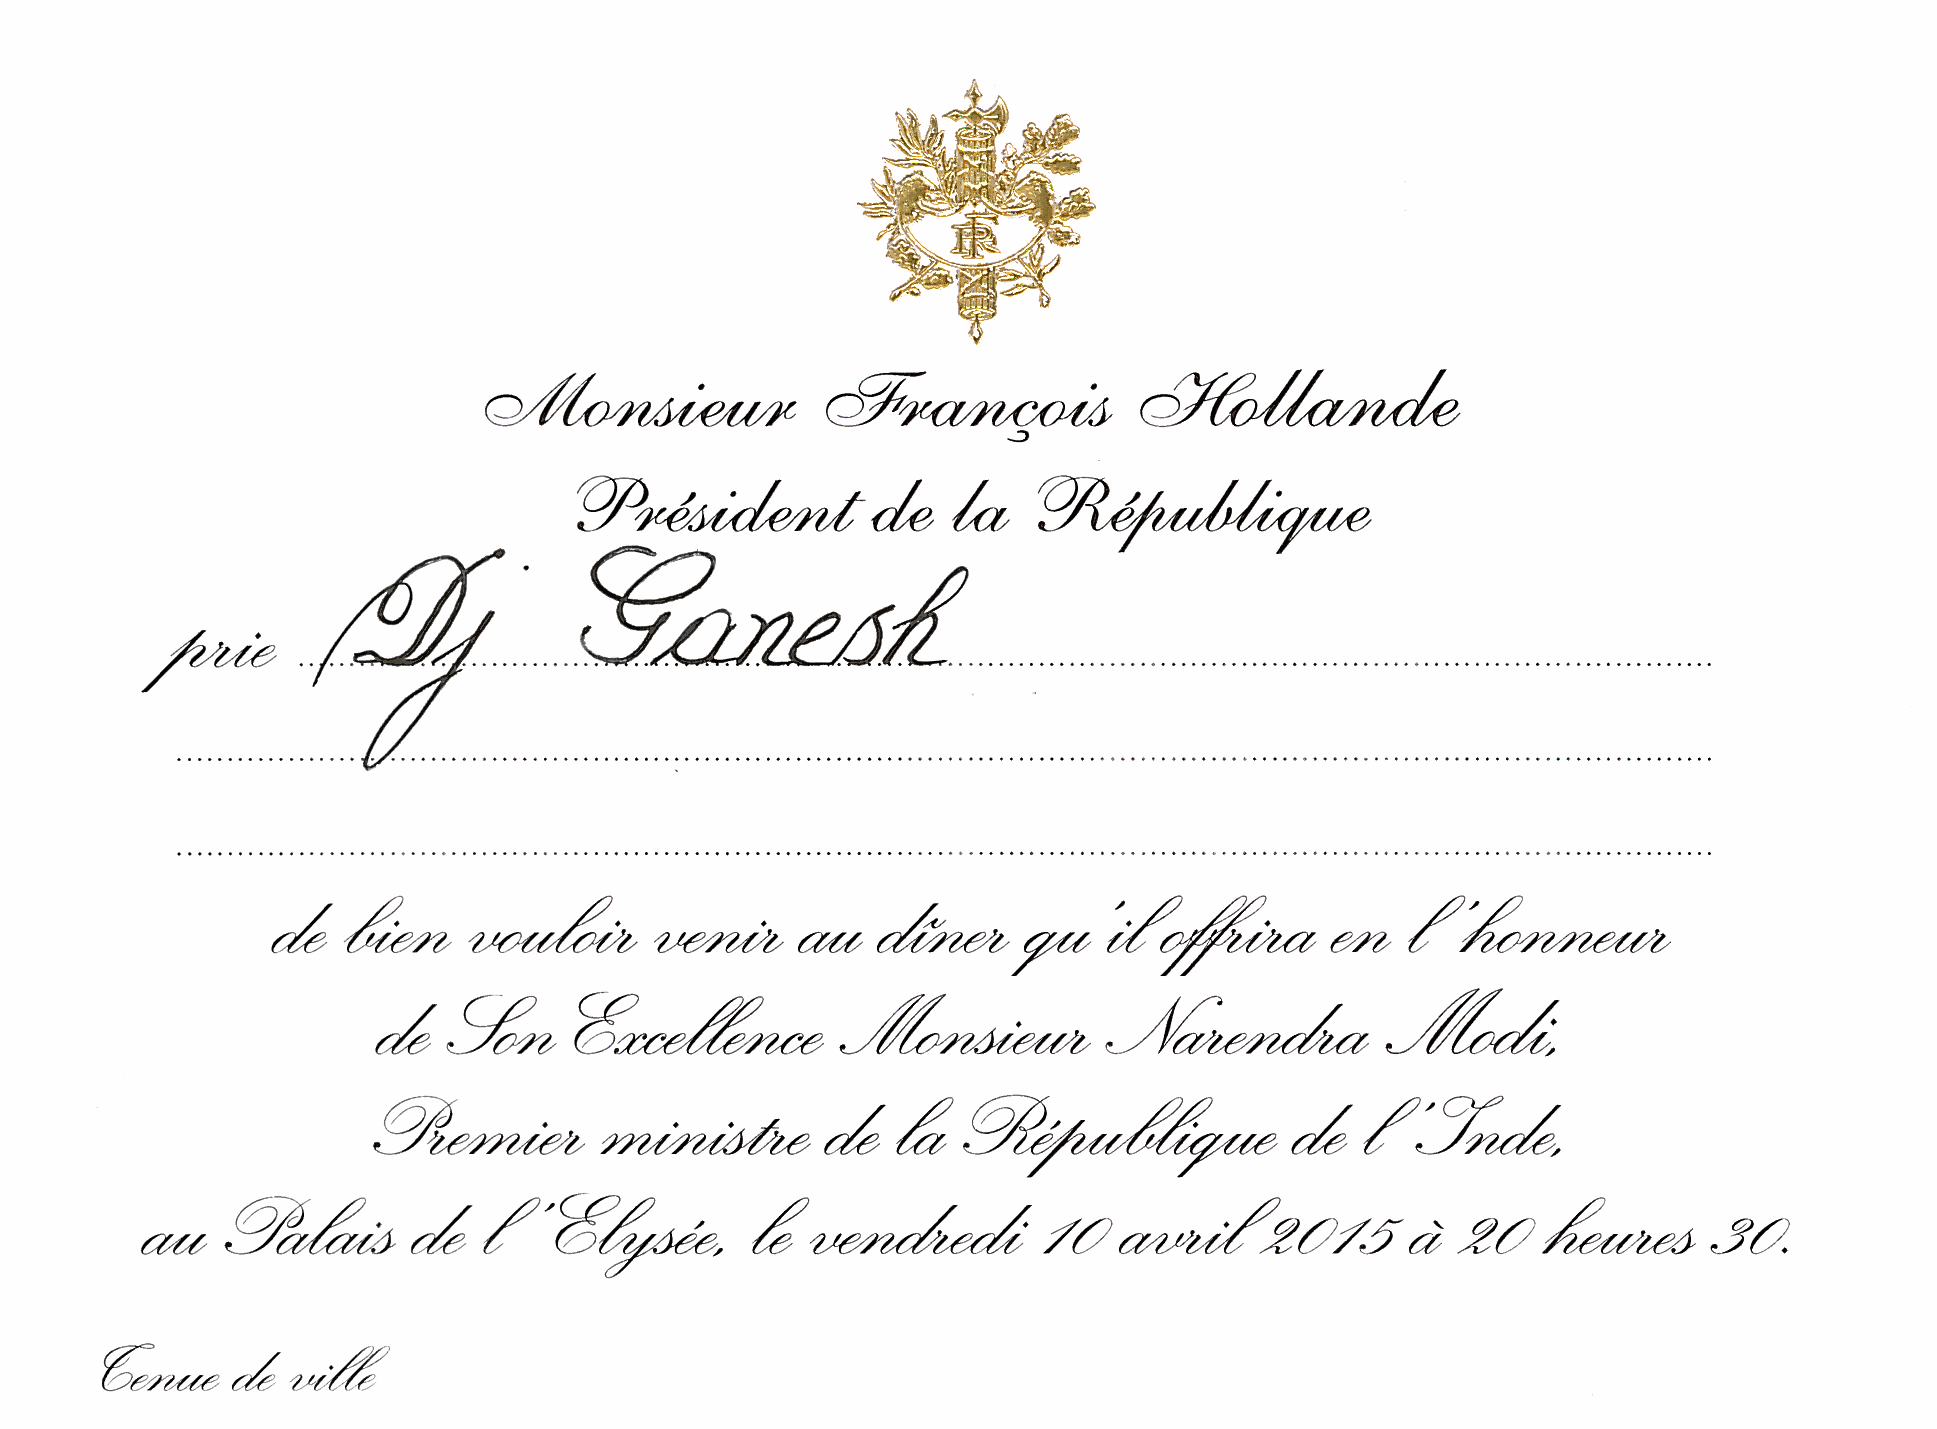 RF
Monsieur François Hollande
Président de la République
prie Dj Ganesh
de bien vouloir venir au dîner qu'il offrira en l'honneur
de Son Excellence Monsieur Narendra Modi,
Premier ministre de la République de l'Inde,
au Palais de l'Elysée, le vendredi 10 avril 2015 à 20 heures 30.
Tenue de ville